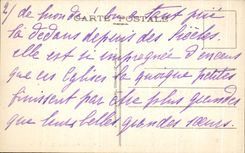 2/
CARTE POSTALE
de monde
là dedans depuis des siècles
elle est si imprégnée d'encens
que ces Eglises là quoique petites
finissent par être plus grandes
que leurs belles grandes sœurs.